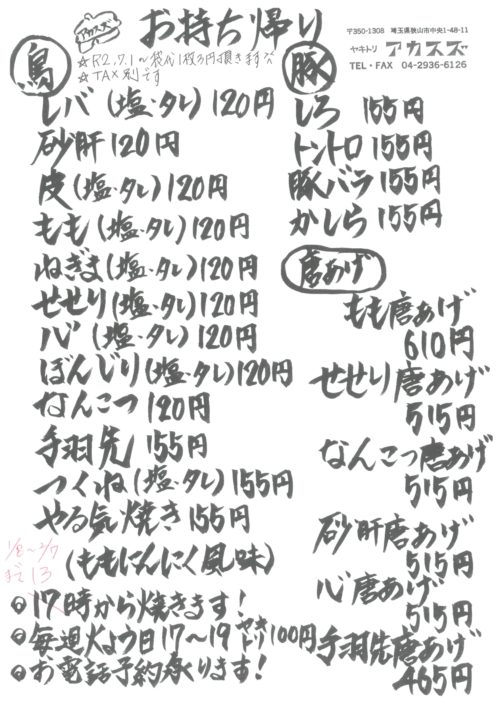 アカスズ
お持ち帰り
〒350-1308 埼玉県狭山市中央1-48-11
ヤキトリ アカスズ
TEL・FAX 04-2936-6126
鳥
☆R2.7.1〜袋代1枚3円頂きます
☆TAX別です
レバ(塩・タレ)120円
砂肝120円
皮(塩・タレ)120円
もも(塩・タレ)120円
ねぎま(塩・タレ)120円
せせり(塩・タレ)120円
ハツ(塩・タレ)120円
ぼんじり(塩・タレ)120円
なんこつ120円
手羽先155円
つくね(塩・タレ)155円
やる気焼き155円
(ももにんにく風味)
1/8〜3/7
まで13
17時から焼きます!
毎週火よう日17〜19ヤキトリ100円
お電話予約承ります!
豚
しろ 155円
トントロ155円
豚バラ155円
かしら155円
唐あげ
もも唐あげ
610円
せせり唐あげ
515円
なんこつ唐あげ
515円
砂肝唐あげ
515円
心唐あげ
515円
手羽先唐あげ
465円